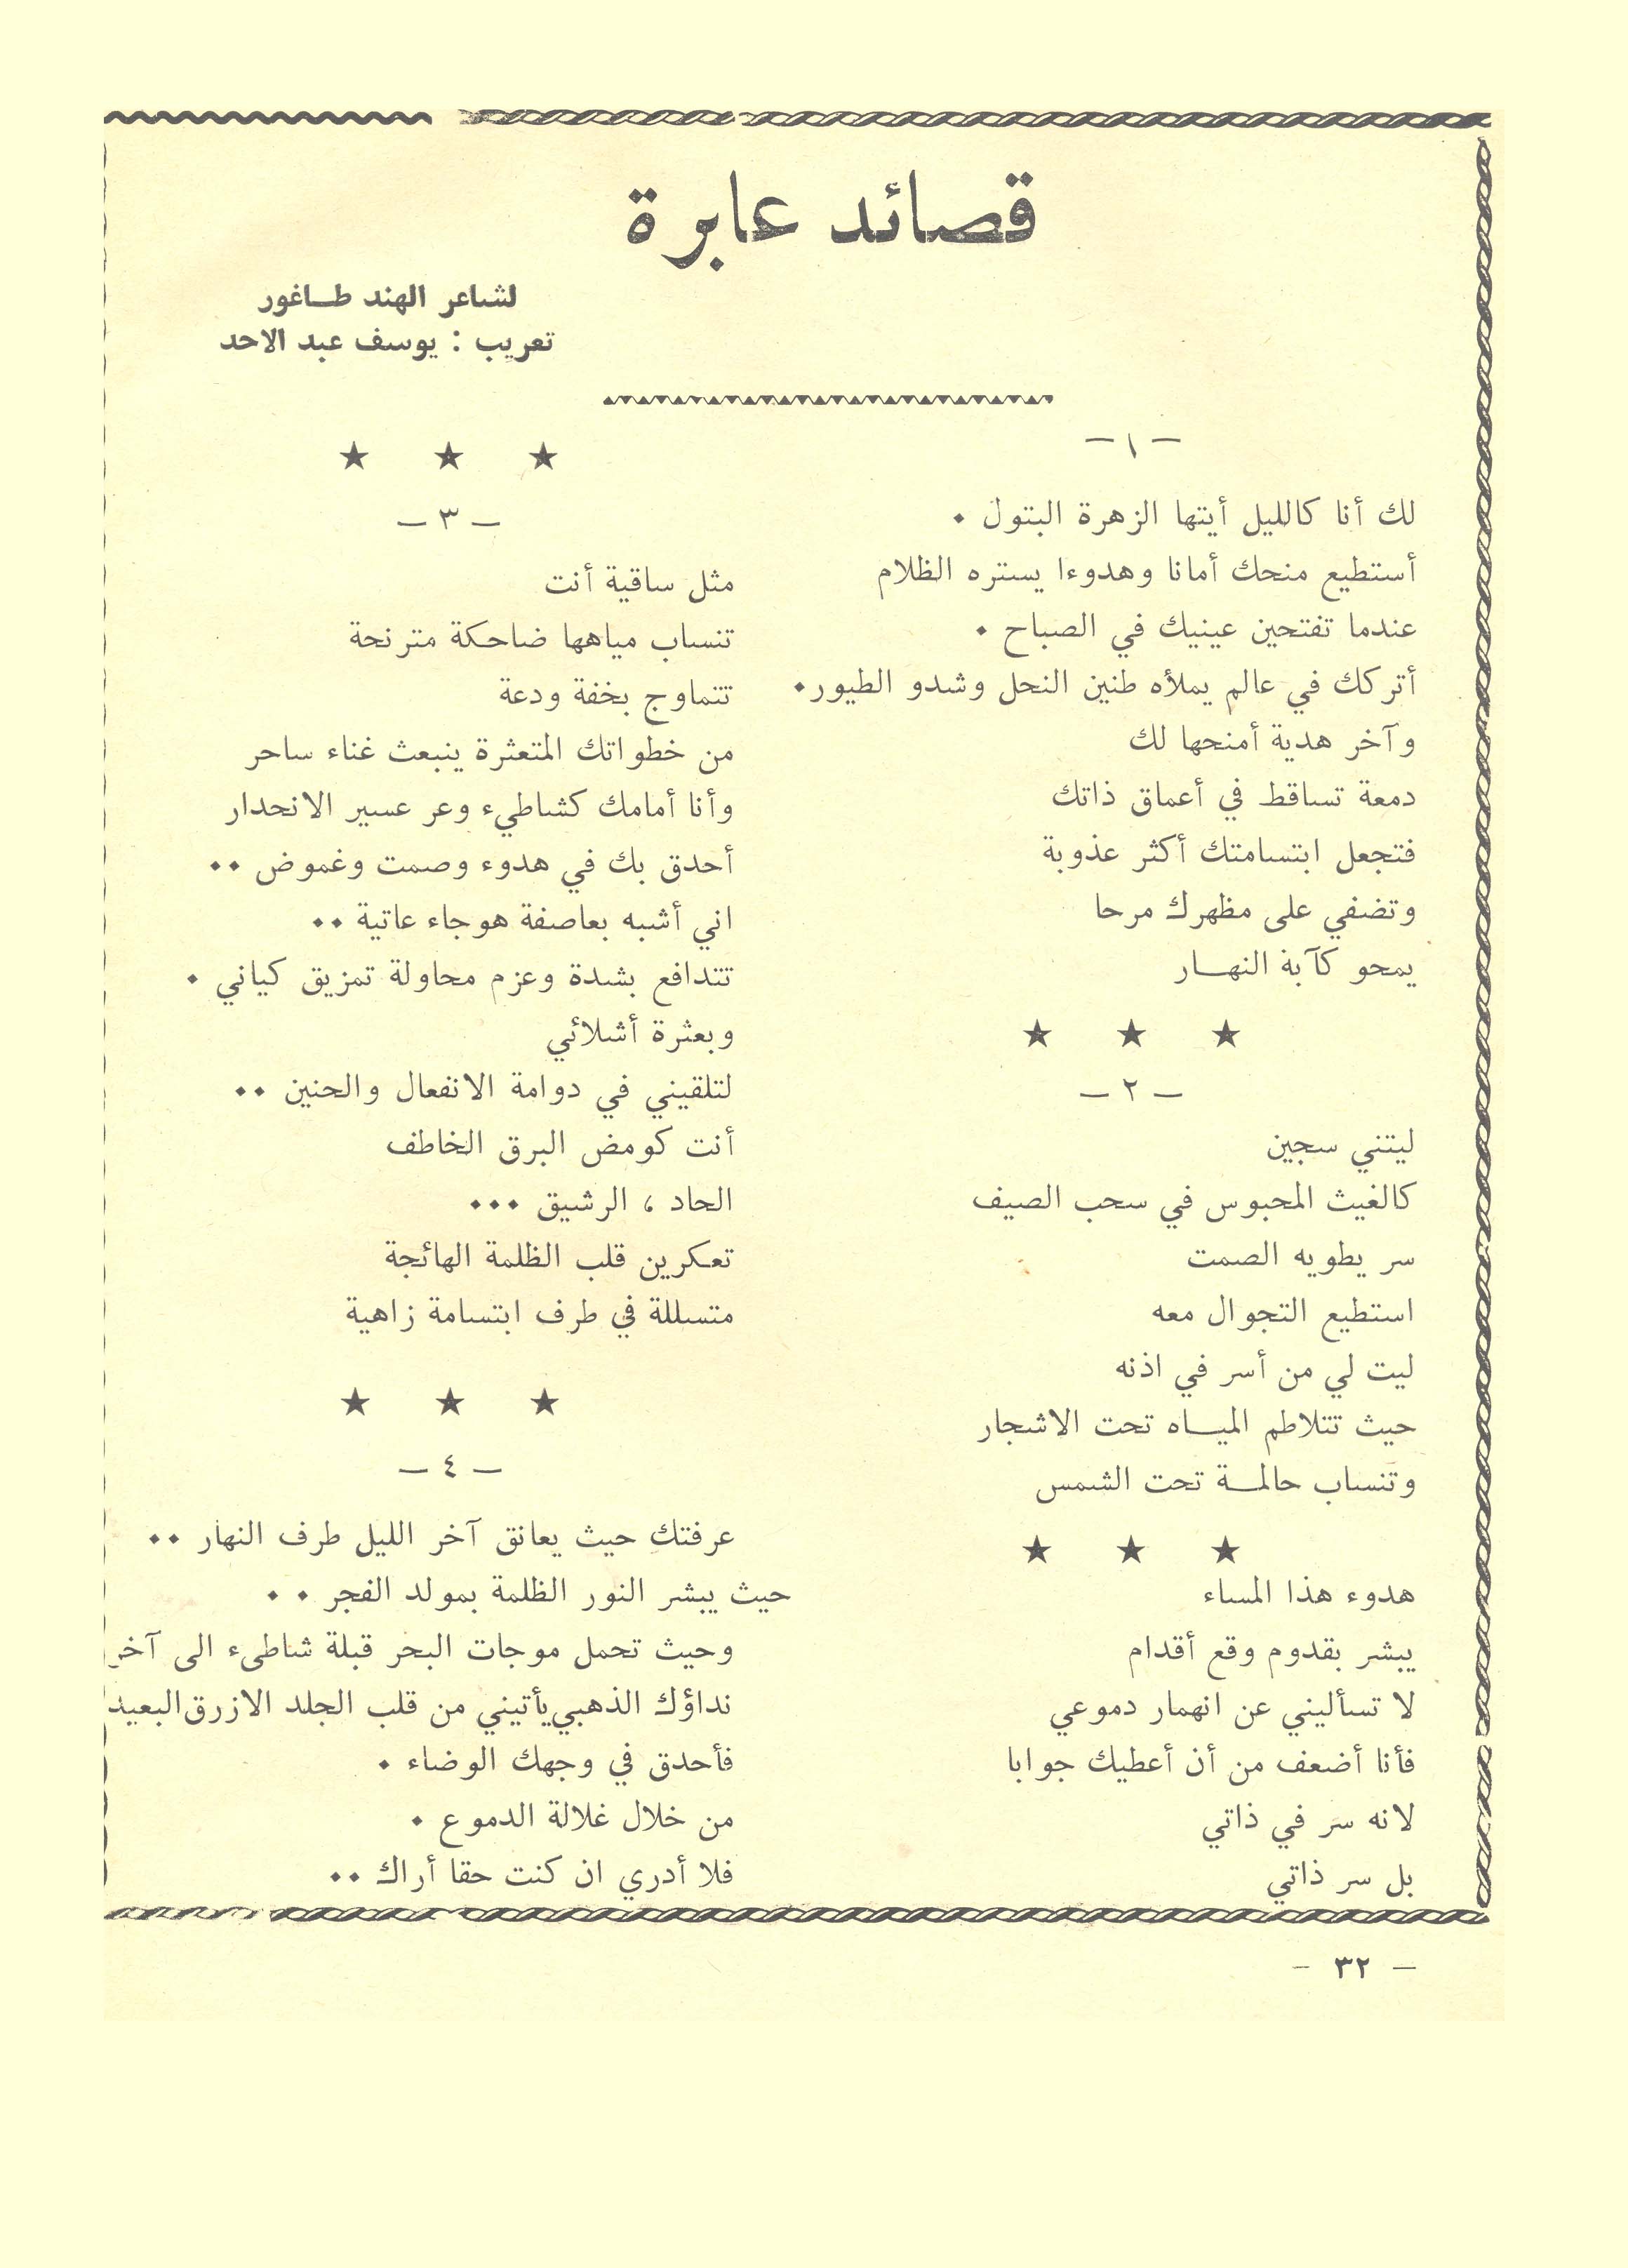 قصائد عابرة
لشاعر الهند طاغور
تعريب : يوسف عبد الاحد
– ١ –
لك أنا كالليل أيتها الزهرة البتول .
أستطيع منحك أمانا وهدوءا يستره الظلام
عندما تفتحين عينيك في الصباح .
أتركك في عالم يملأه طنين النحل وشدو الطيور.
وآخر هدية أمنحها لك
دمعة تساقط في أعماق ذاتك
فتجعل ابتسامتك أكثر عذوبة
وتضفي على مظهرك مرحا
يمحو كآبة النهــار
★ ★ ★
– ٢ –
ليتني سجين
كالغيث المحبوس في سحب الصيف
سر يطويه الصمت
استطيع التجوال معه
ليت لي من أسر في اذنه
حيث تتلاطم الميــاه تحت الاشجار
وتنساب حالمــة تحت الشمس
★ ★ ★
هدوء هذا المساء
يبشر بقدوم وقع أقدام
لا تسأليني عن انهمار دموعي
فأنا أضعف من أن أعطيك جوابا
لانه سر في ذاتي
بل سر ذاتي
★ ★ ★
– ٣ –
مثل ساقية أنت
تنساب مياهها ضاحكة مترنحة
تتماوج بخفة ودعة
من خطواتك المتعثرة ينبعث غناء ساحر
وأنا أمامك كشاطيء وعر عسير الانحدار
أحدق بك في هدوء وصمت وغموض ..
اني أشبه بعاصفة هوجاء عاتية ..
تتدافع بشدة وعزم محاولة تمزيق كياني .
وبعثرة أشلائي
لتلقيني في دوامة الانفعال والحنين ..
أنت كومض البرق الخاطف
الحاد ، الرشيق ...
تعكرين قلب الظلمة الهائجة
متسللة في طرف ابتسامة زاهية
★ ★ ★
– ٤ –
عرفتك حيث يعانق آخر الليل طرف النهار ..
حيث يبشر النور الظلمة بمولد الفجر . .
وحيث تحمل موجات البحر قبلة شاطىء الى آخر
نداؤك الذهبي يأتيني من قلب الجلد الازرق البعيد
فأحدق في وجهك الوضاء .
من خلال غلالة الدموع .
فلا أدري ان كنت حقا أراك ..
– ٣٢ –